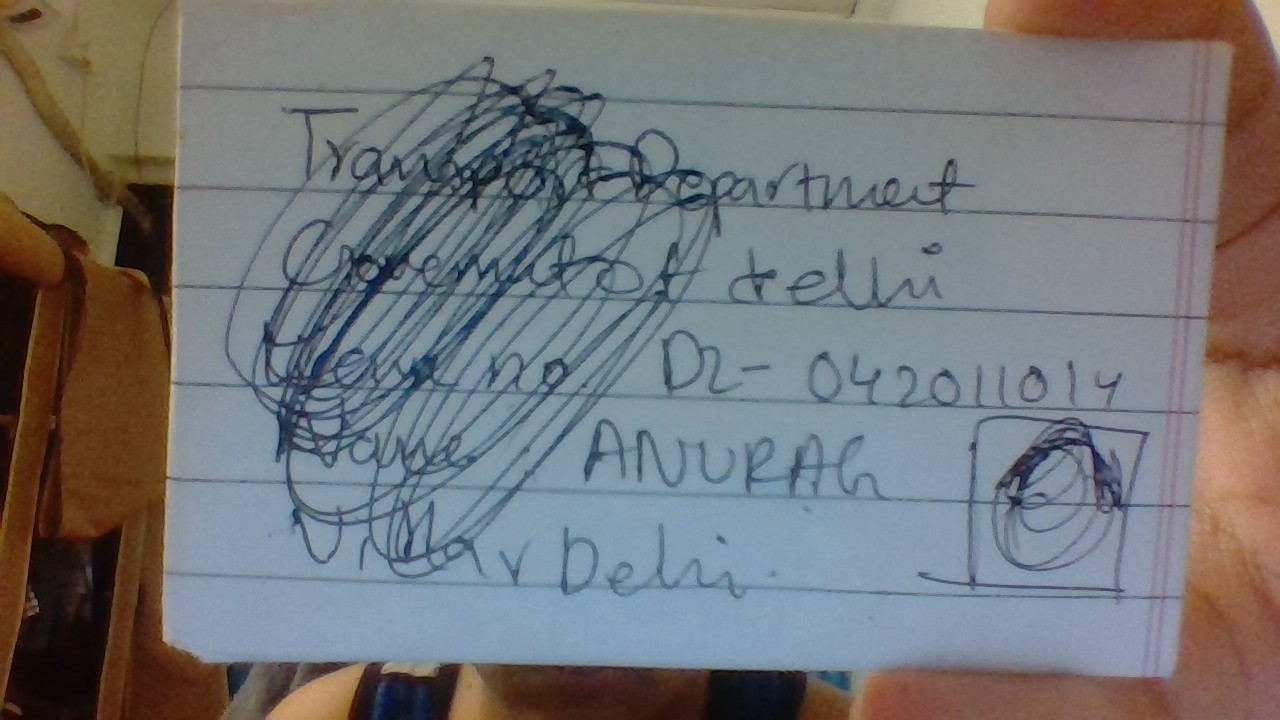 Transport Department
Government of delhi
no DL-042011014
Name ANURAG
Vihar Delhi